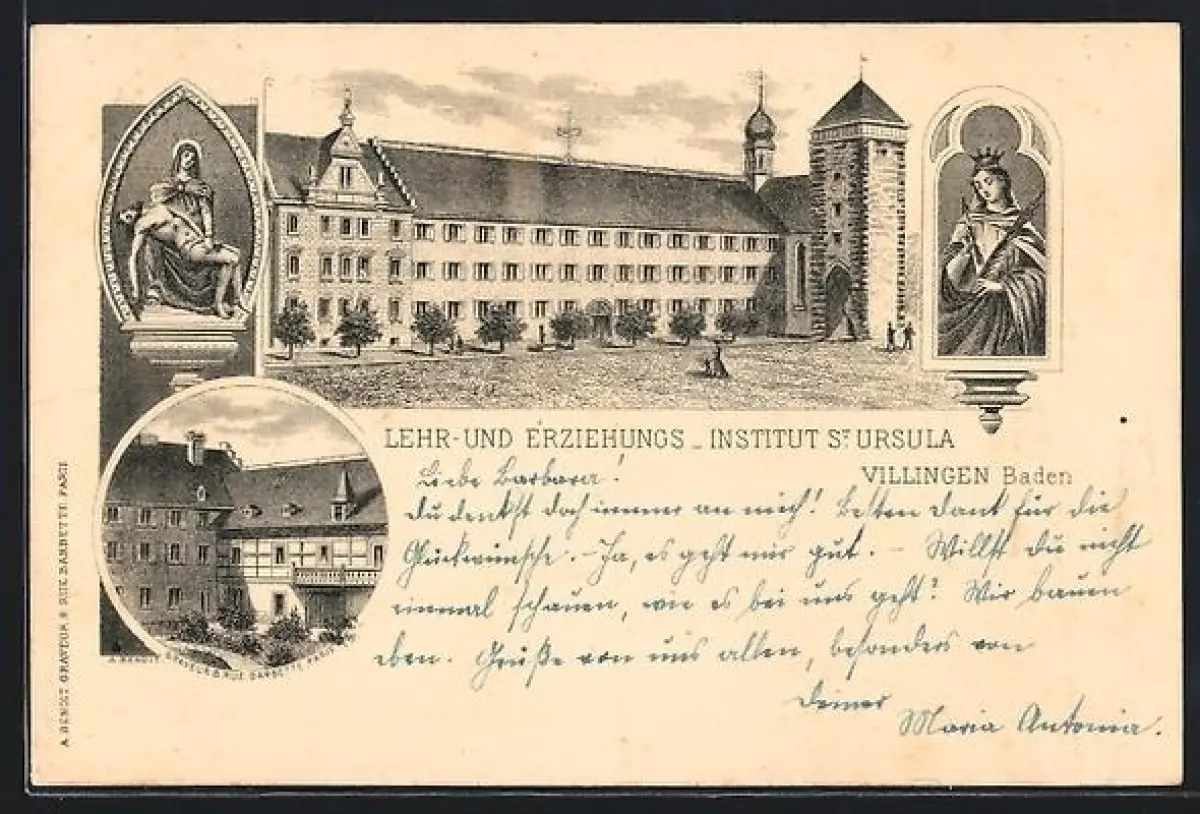 LEHR-UND ERZIEHUNGS_INSTITUT ST URSULA
VILLINGEN Baden
Liebe Barbara!
Du denkst doch immer an mich! Besten Dank für die
Glückwünsche. - Ja, es geht mir gut. - Willst Du nicht
einmal schauen, wie es bei uns geht? Wir bauen
eben. Grüße von uns allen, besonders von
Deiner
Maria Antonia.
A. BENOIST GRAVEUR 8 RUE BARBETTE PARIS
A. BENOIST GRAVEUR 8 RUE BARBETTE PARIS